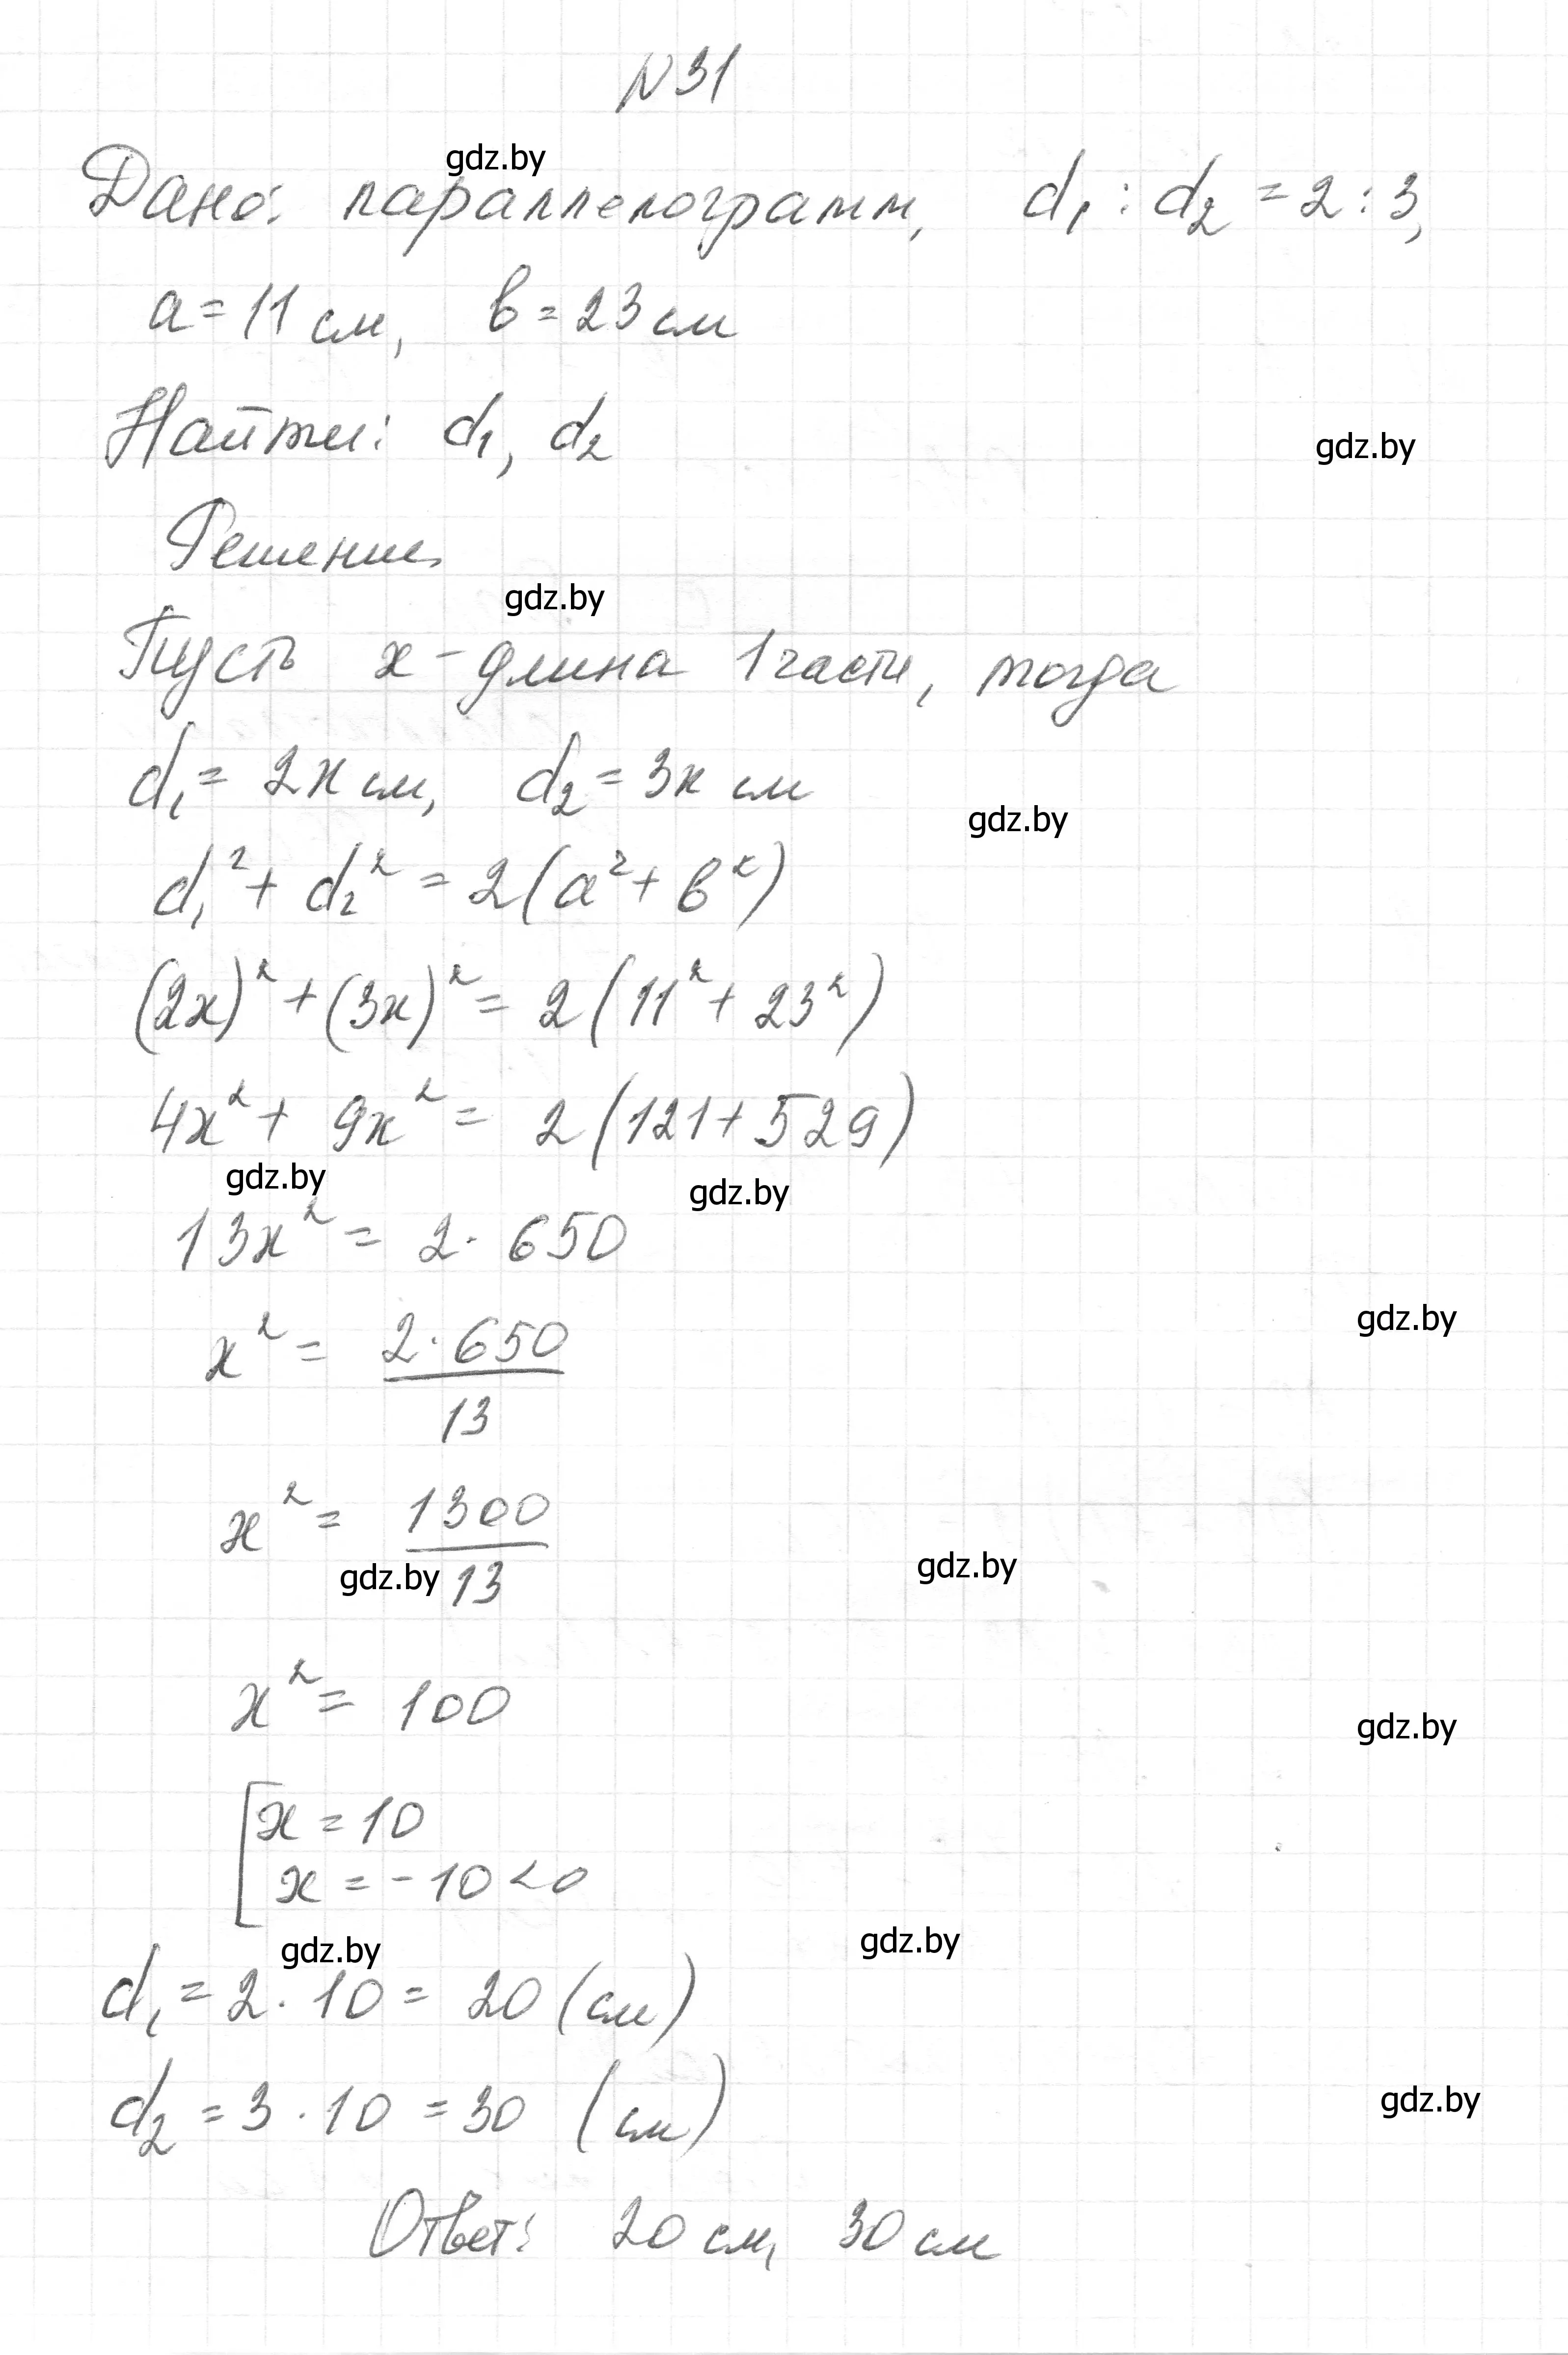 N 31
gdz.by
Дано: параллелограмм, d₁ : d₂ = 2 : 3,
a = 11 см, b = 23 см
Найти: d₁, d₂
gdz.by
Решение
gdz.by
Пусть x - длина 1 части, тогда
d₁ = 2x см, d₂ = 3x см
gdz.by
d₁² + d₂² = 2(a² + b²)
(2x)² + (3x)² = 2(11² + 23²)
4x² + 9x² = 2(121 + 529)
gdz.by gdz.by
13x² = 2 · 650
gdz.by
x² = 2 · 650 / 13
x² = 1300 / 13
gdz.by gdz.by
x² = 100
gdz.by
[x = 10
x = -10 < 0
gdz.by gdz.by
d₁ = 2 · 10 = 20 (см)
d₂ = 3 · 10 = 30 (см)
gdz.by
Ответ: 20 см, 30 см